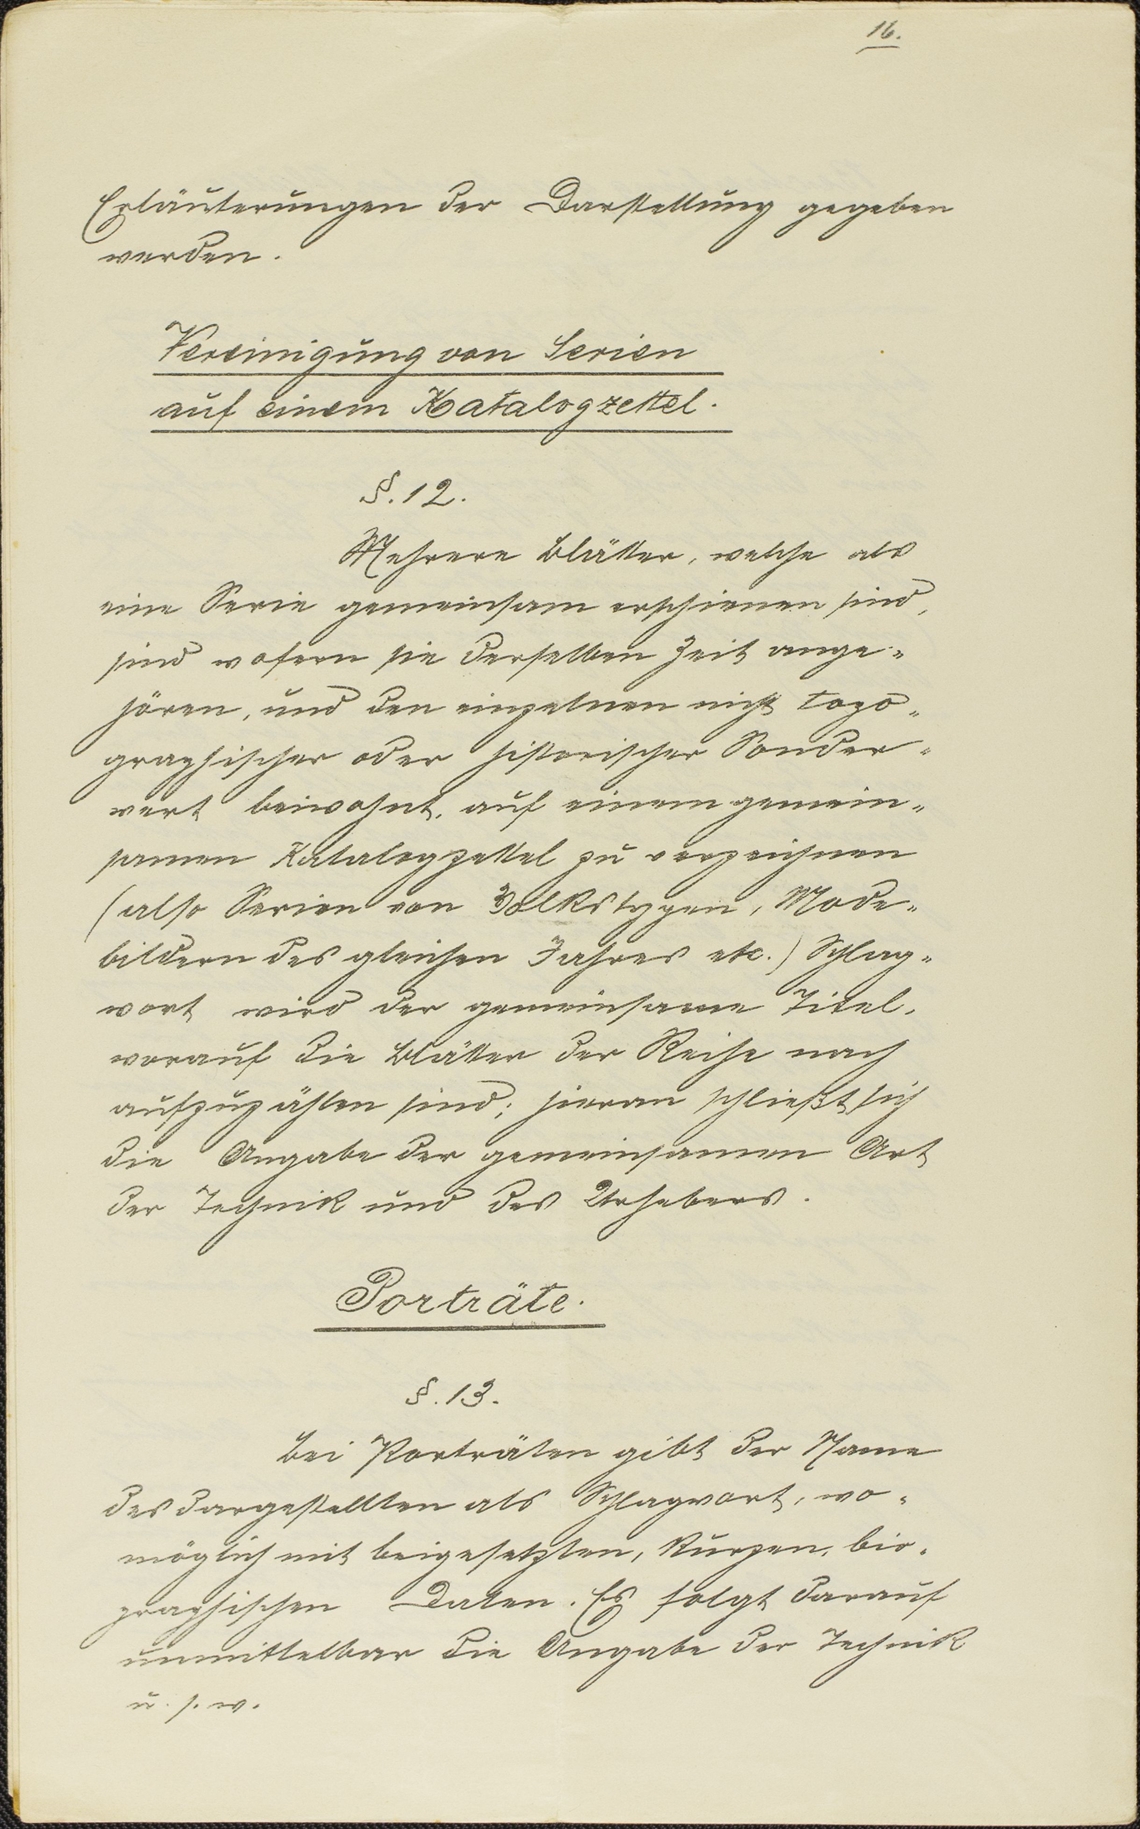 16.
Erläuterungen der Darstellung gegeben
werden.
Vereinigung von Serien
auf einem Katalogzettel.
§. 12.
Mehrere Blätter, welche als
eine Serie gemeinsam erschienen sind,
sind wofern sie derselben Zeit ange-
hören, und den einzelnen nicht topo-
graphischer oder historischer Sonder-
wert beiwohnt, auf einem gemein-
samen Katalogzettel zu verzeichnen
(also Serien von Volkstypen, Mode-
bildern des gleichen Jahres etc.) Schlag-
wort wird der gemeinsame Titel,
worauf die Blätter der Reihe nach
aufzuzählen sind; hieran schließt sich
die Angabe der gemeinsamen Art
der Technik und des Urhebers.
Porträte.
§. 13.
Bei Porträten gibt der Name
des dargestellten als Schlagwort, wo-
möglich mit beigesetzten, kurzen, bio-
graphischen Daten. Es folgt darauf
unmittelbar die Angabe der Technik
u. s. w.